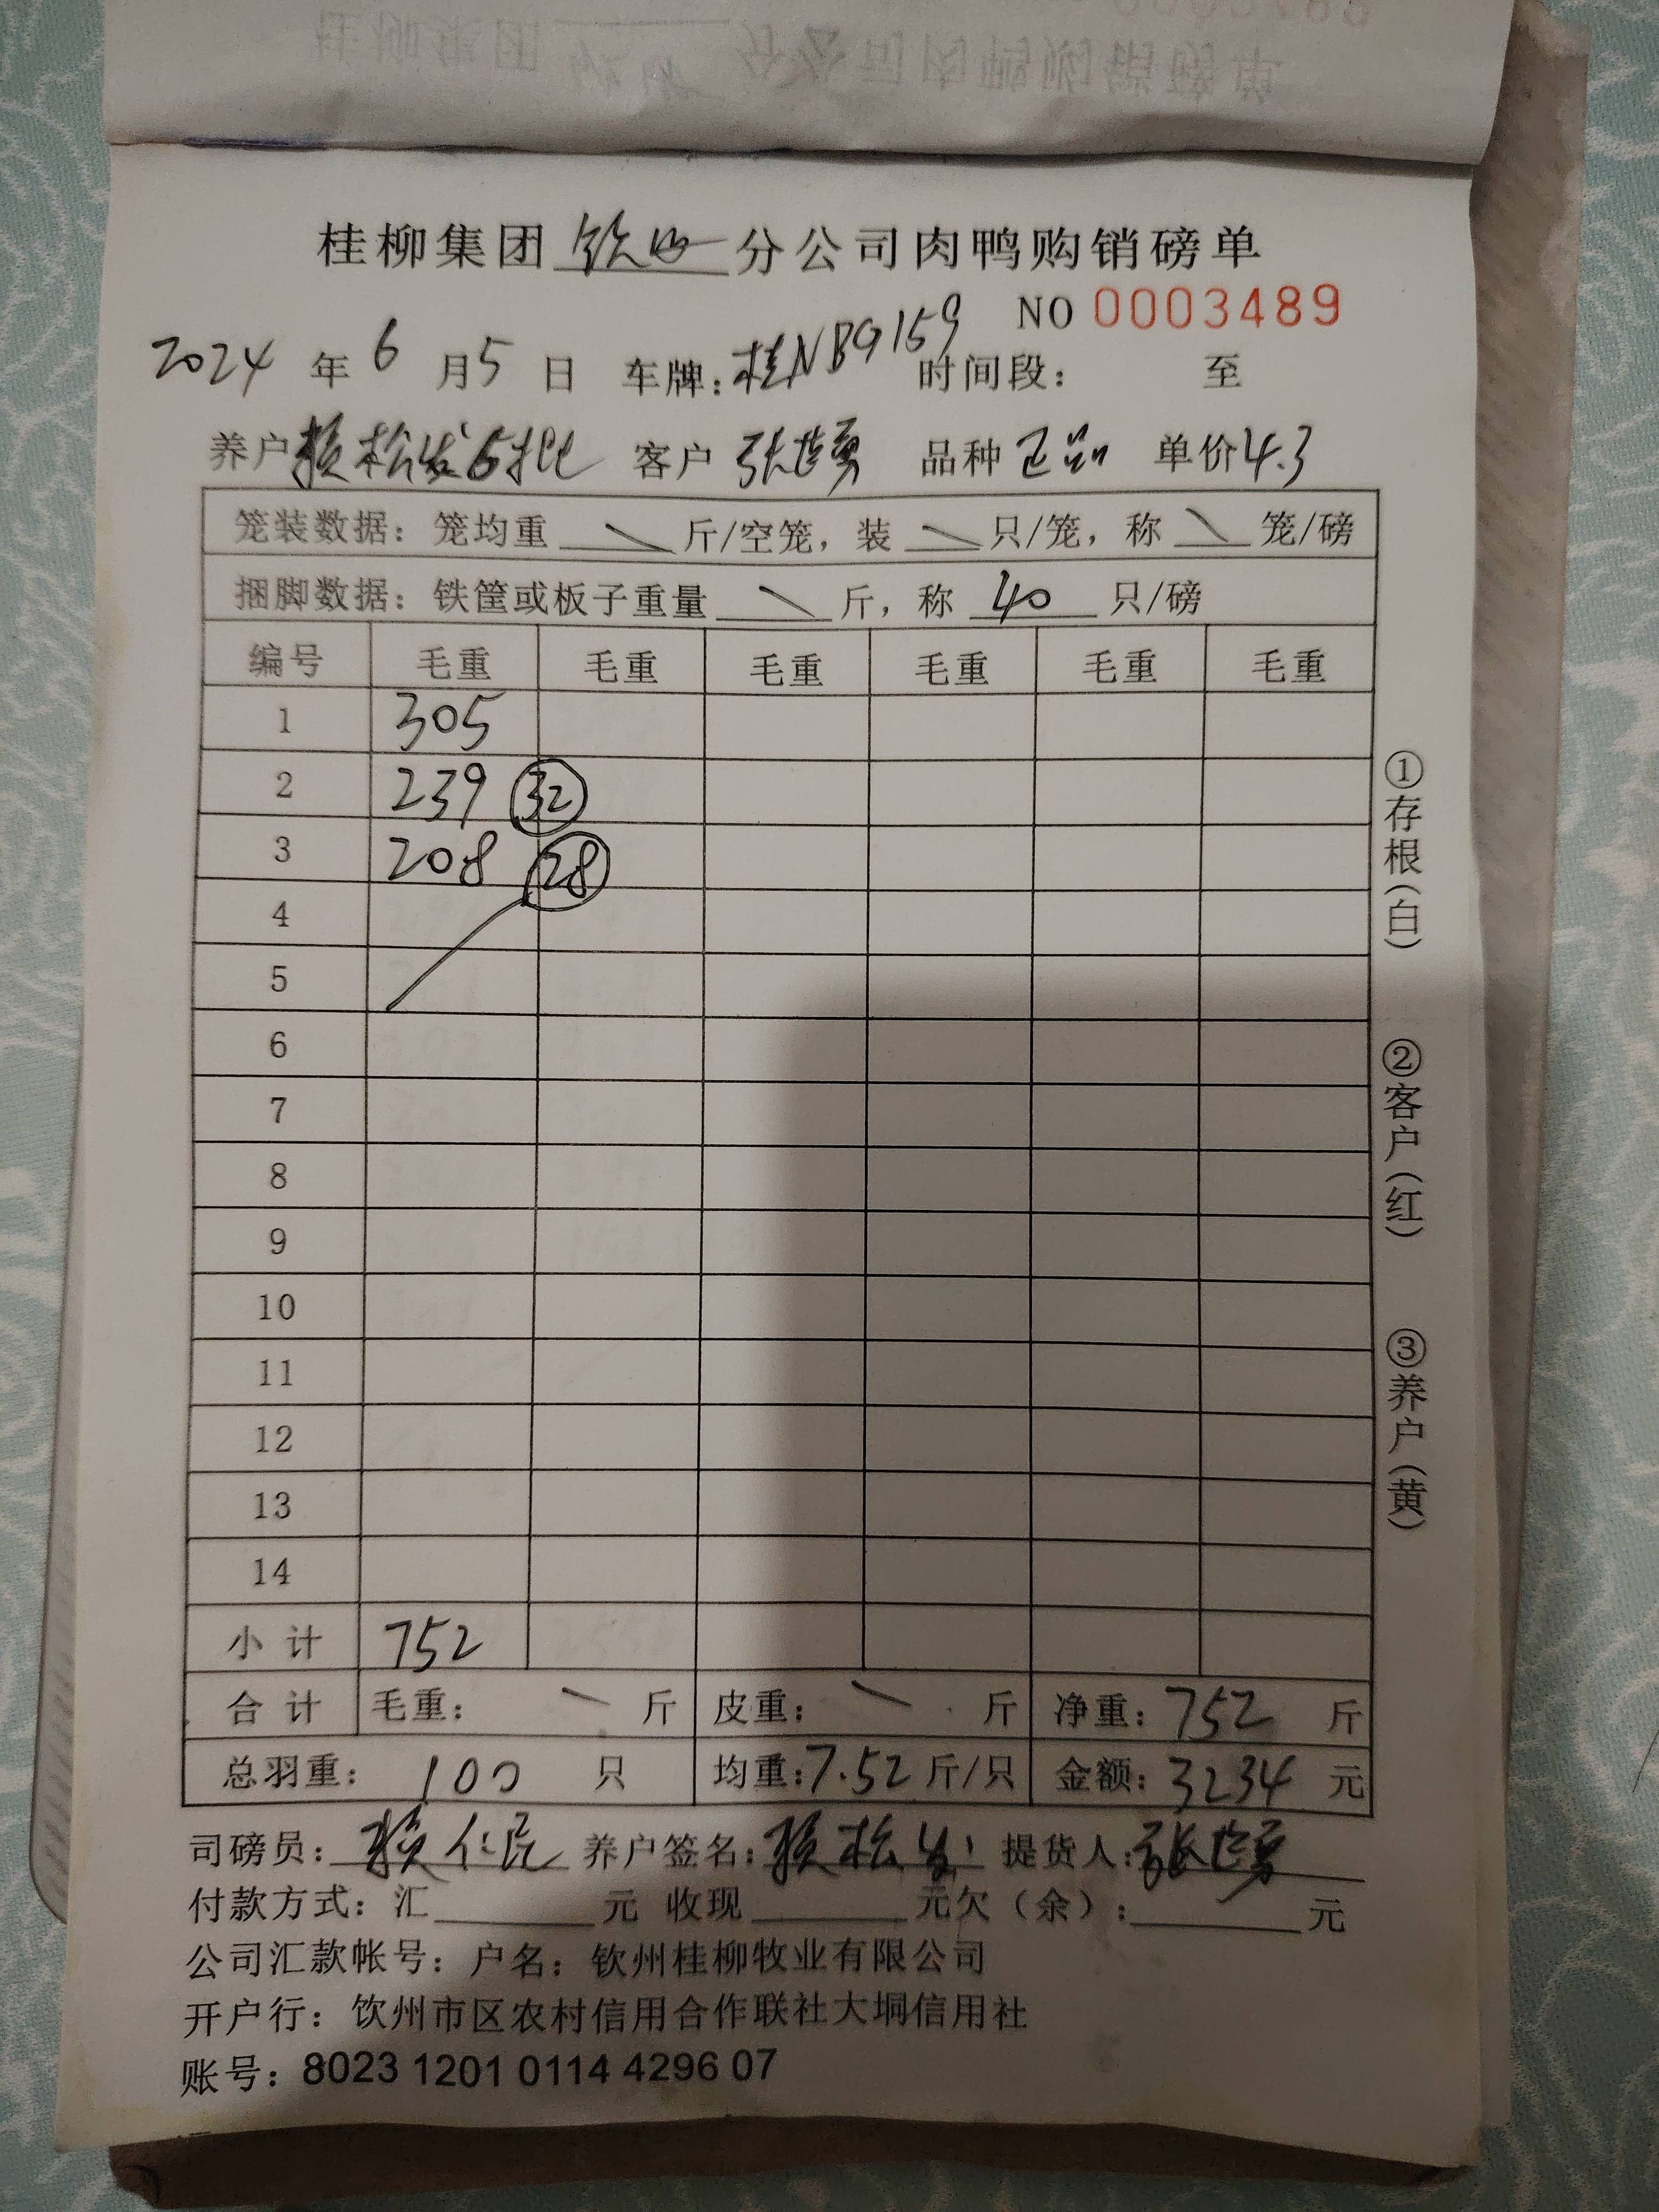 桂柳集团 钦州 分公司肉鸭购销磅单
NO 0003489
2024 年 6 月 5 日 车牌：桂NB9159 时间段： 至
养户 赖松发6批 客户 张世勇 品种 正品 单价 4.3
笼装数据：笼均重 \ 斤/空笼，装 \ 只/笼，称 \ 笼/磅
捆脚数据：铁筐或板子重量 \ 斤，称 40 只/磅
编号 毛重 毛重 毛重 毛重 毛重 毛重
1 305
2 239 32
3 208 28
4
5
6
7
8
9
10
11
12
13
14
小计 752
合计 毛重： \ 斤 皮重： \ 斤 净重：752 斤
总羽重： 100 只 均重：7.52 斤/只 金额：3234 元
司磅员：赖仁民 养户签名：赖松发 提货人：张世勇
付款方式：汇 元 收现 元欠（余）： 元
公司汇款帐号：户名：钦州桂柳牧业有限公司
开户行：钦州市区农村信用合作联社大垌信用社
账号：8023 1201 0114 4296 07
①存根（白）
②客户（红）
③养户（黄）